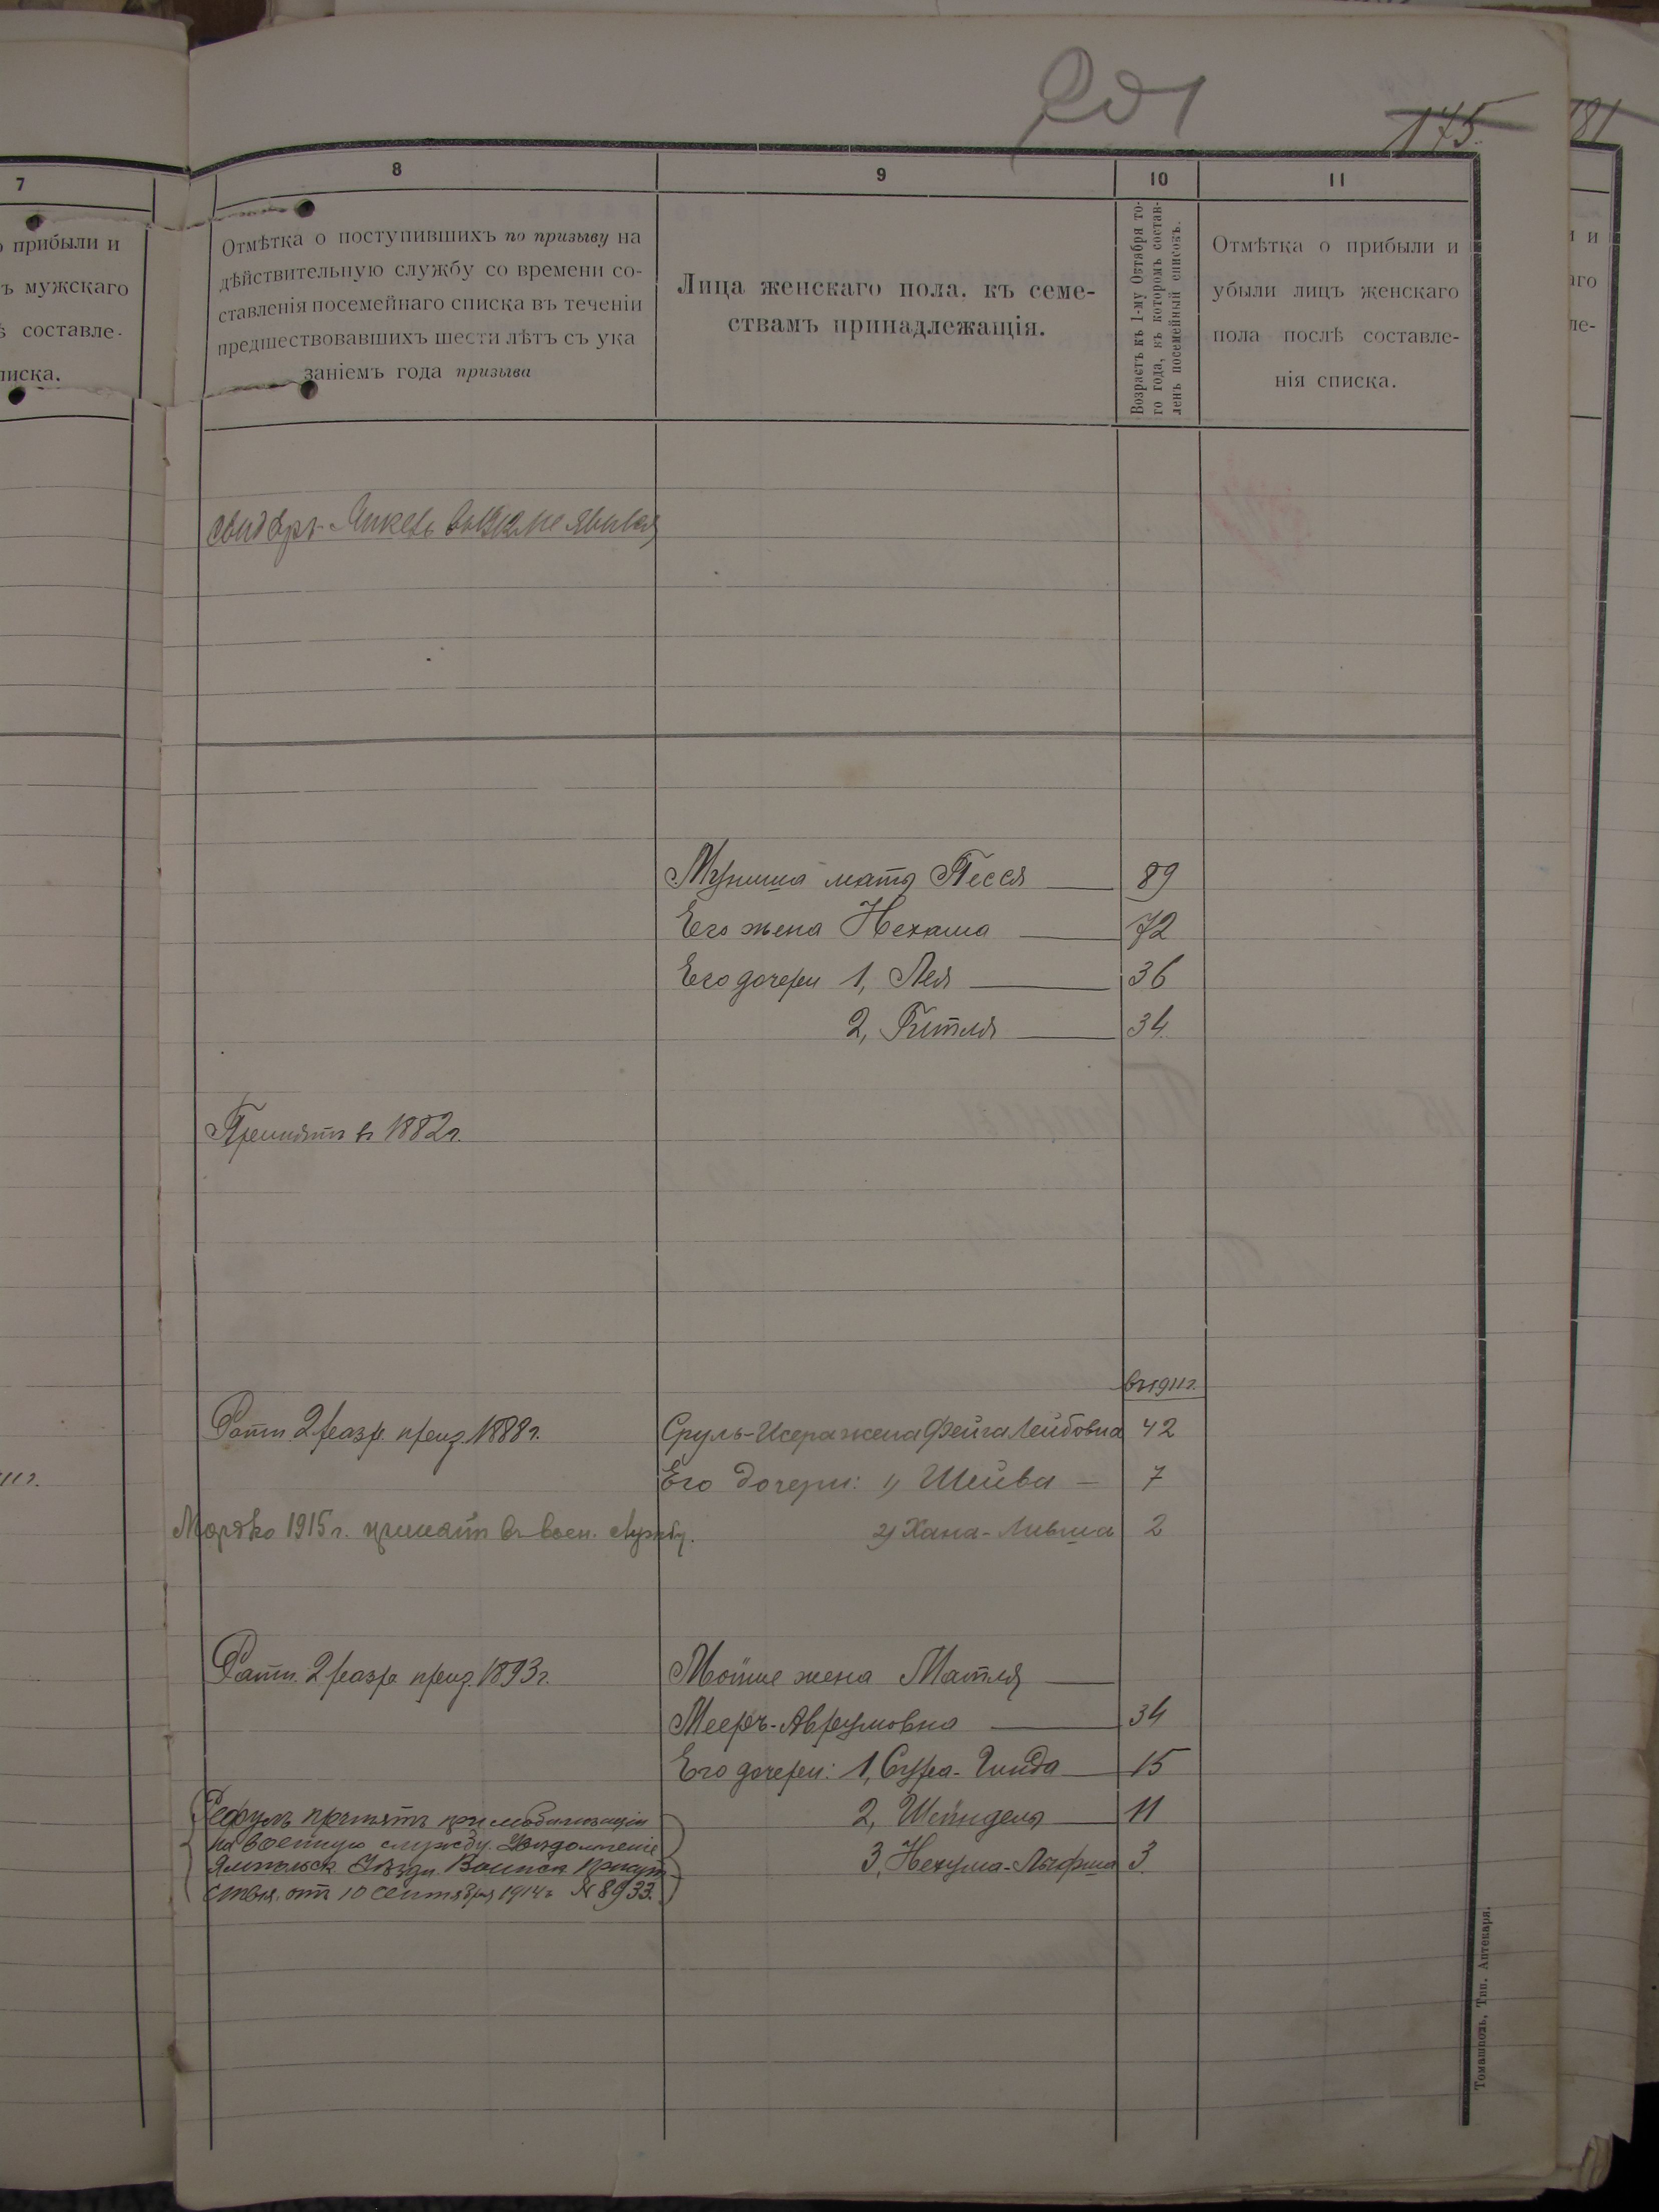 201
175.
181
7
8
9
10
11
прибыли и
ъ мужскаго
составле-
писка.
Отмѣтка о поступившихъ по призыву на
дѣйствительную службу со времени со-
ставленія посемейнаго списка въ теченіи
предшествовавшихъ шести лѣтъ съ ука
заніемъ года призыва
Лица женскаго пола, къ семе-
ствамъ принадлежащія.
Возрастъ къ 1-му Октября то-
го года, въ которомъ состав-
ленъ посемейный списокъ.
Отмѣтка о прибыли и
убыли лицъ женскаго
пола послѣ составле-
нія списка.
не явился
Муниша мать Песся 89
Его жена Нехама 72
Его дочери 1, Лея 36
2, Гитля 34
Принятъ въ 1882 г.
въ 1911 г.
Ратн. 2 разр. приз. 1888 г.
Сруль-Исера жена Фейга Лейбовна 42
Его дочери: 1) Шейва 7
1915 г. принят въ воен. службу.
2) Хана-Ливша 2
Ратн. 2 разр приз. 1893 г.
Мойше жена Матля
Мееръ-Аврумовна 34
Его дочери: 1, Сура-Гинда 15
2, Шейндля 11
3, Нехума 3
принятъ при мобилизаціи
на военную службу. Увѣдомленіе
Ямпольск. Уѣздн. Воинск. Присут-
ствія. отъ 10 сентября 1914 г. № 8933.
Томашполь, Тип. Аптекаря.